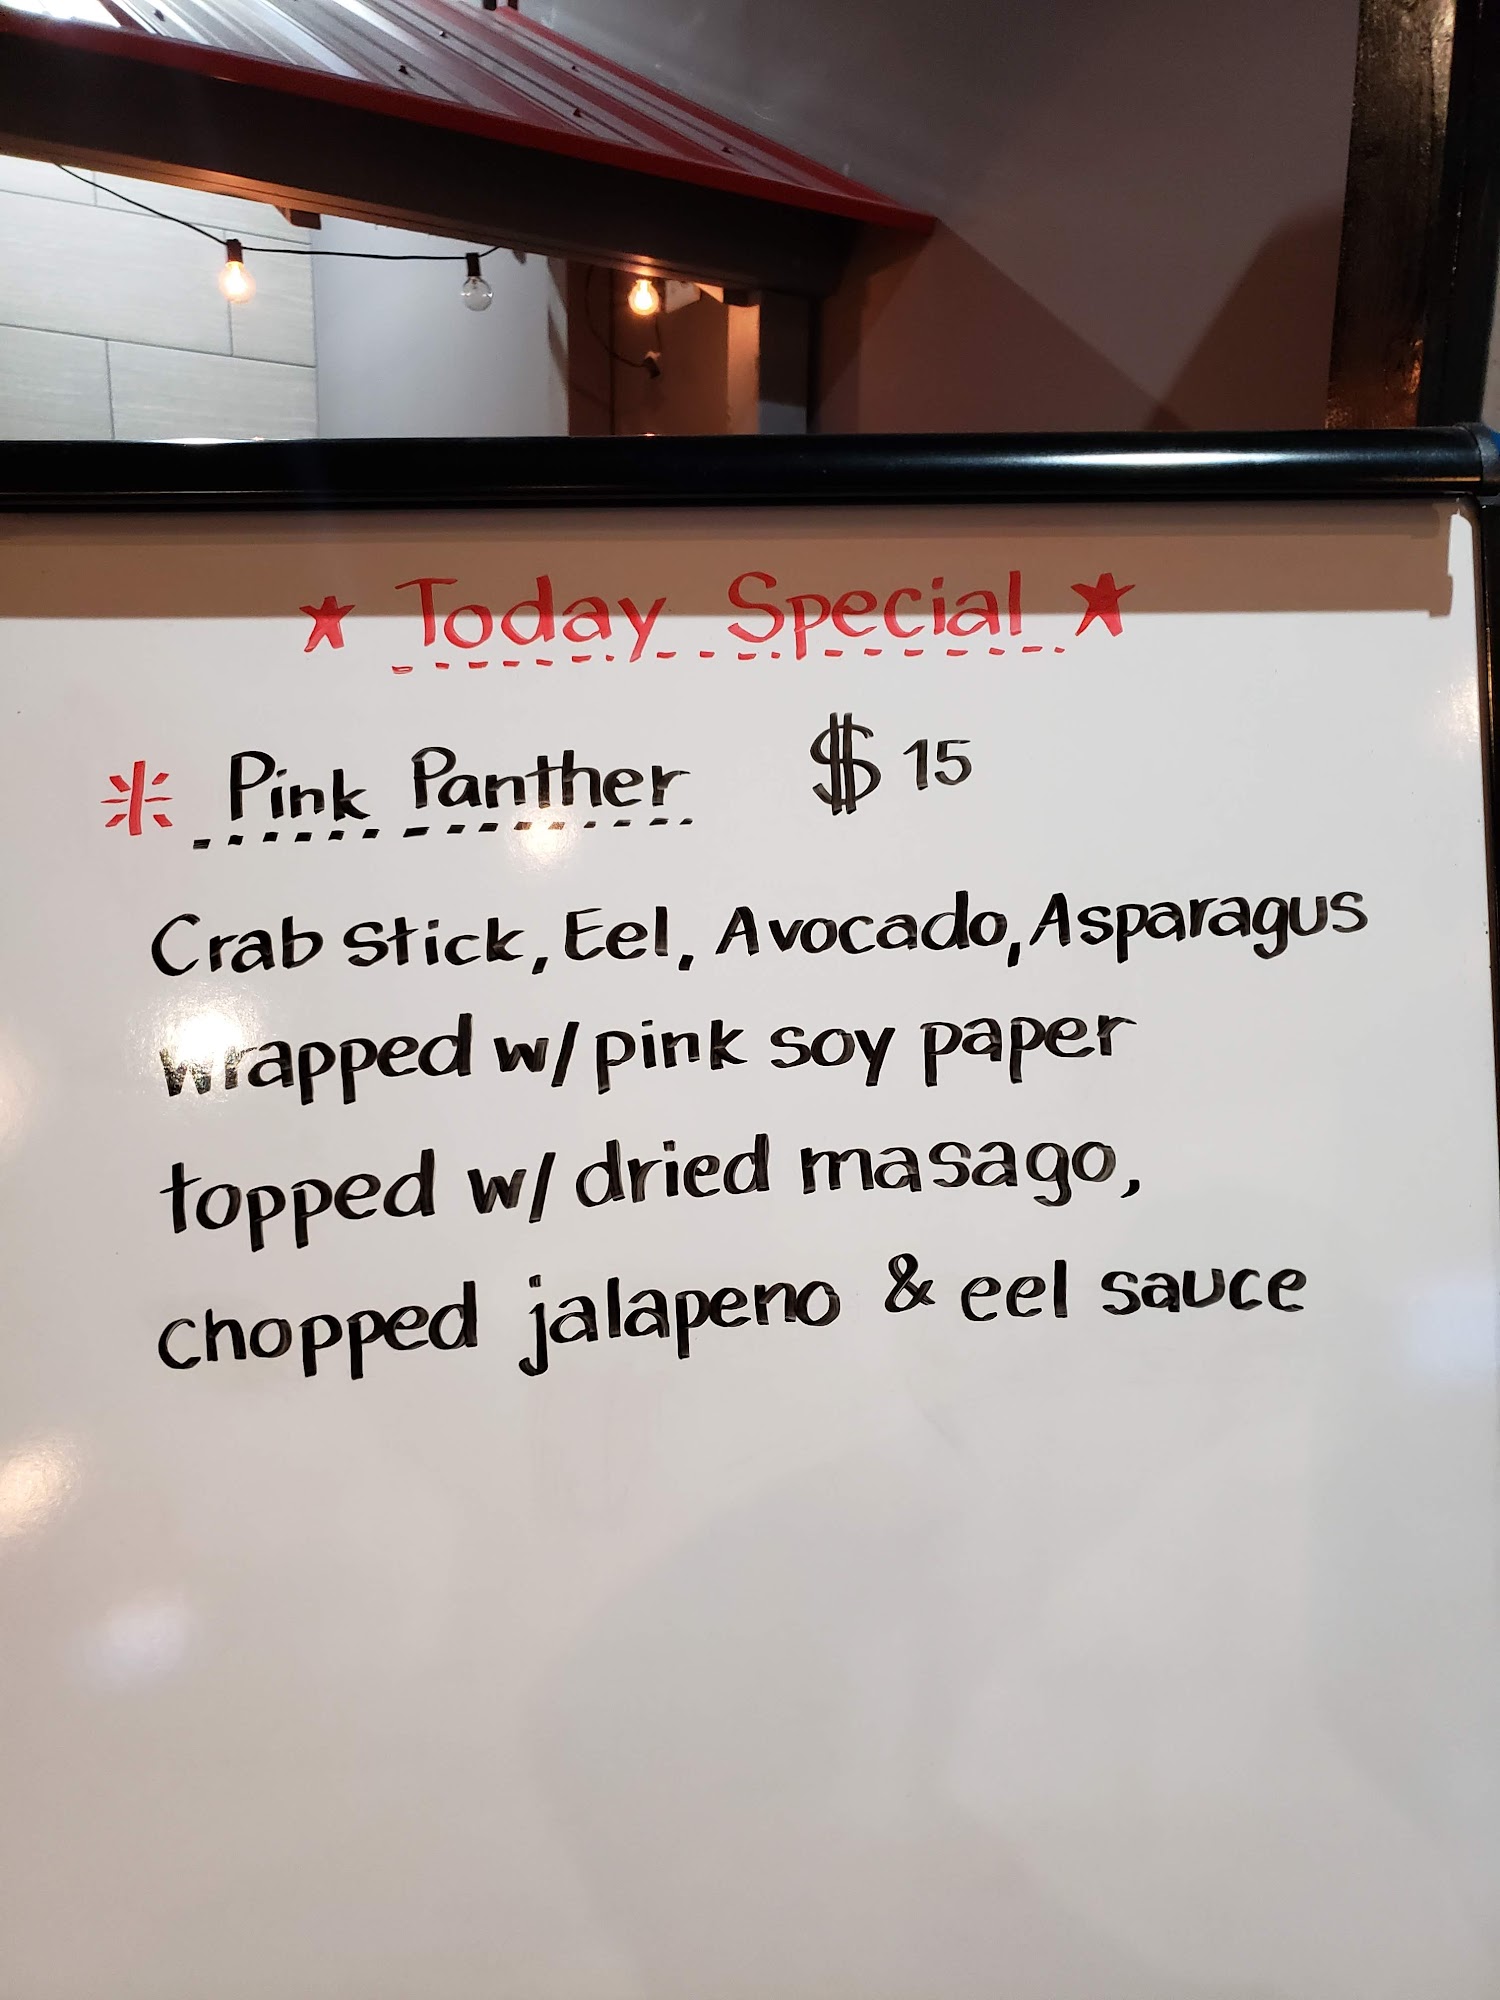 ★ Today Special ★
Pink Panther $15
Crab stick, Eel, Avocado, Asparagus
wrapped w/ pink soy paper
topped w/ dried masago,
chopped jalapeno & eel sauce